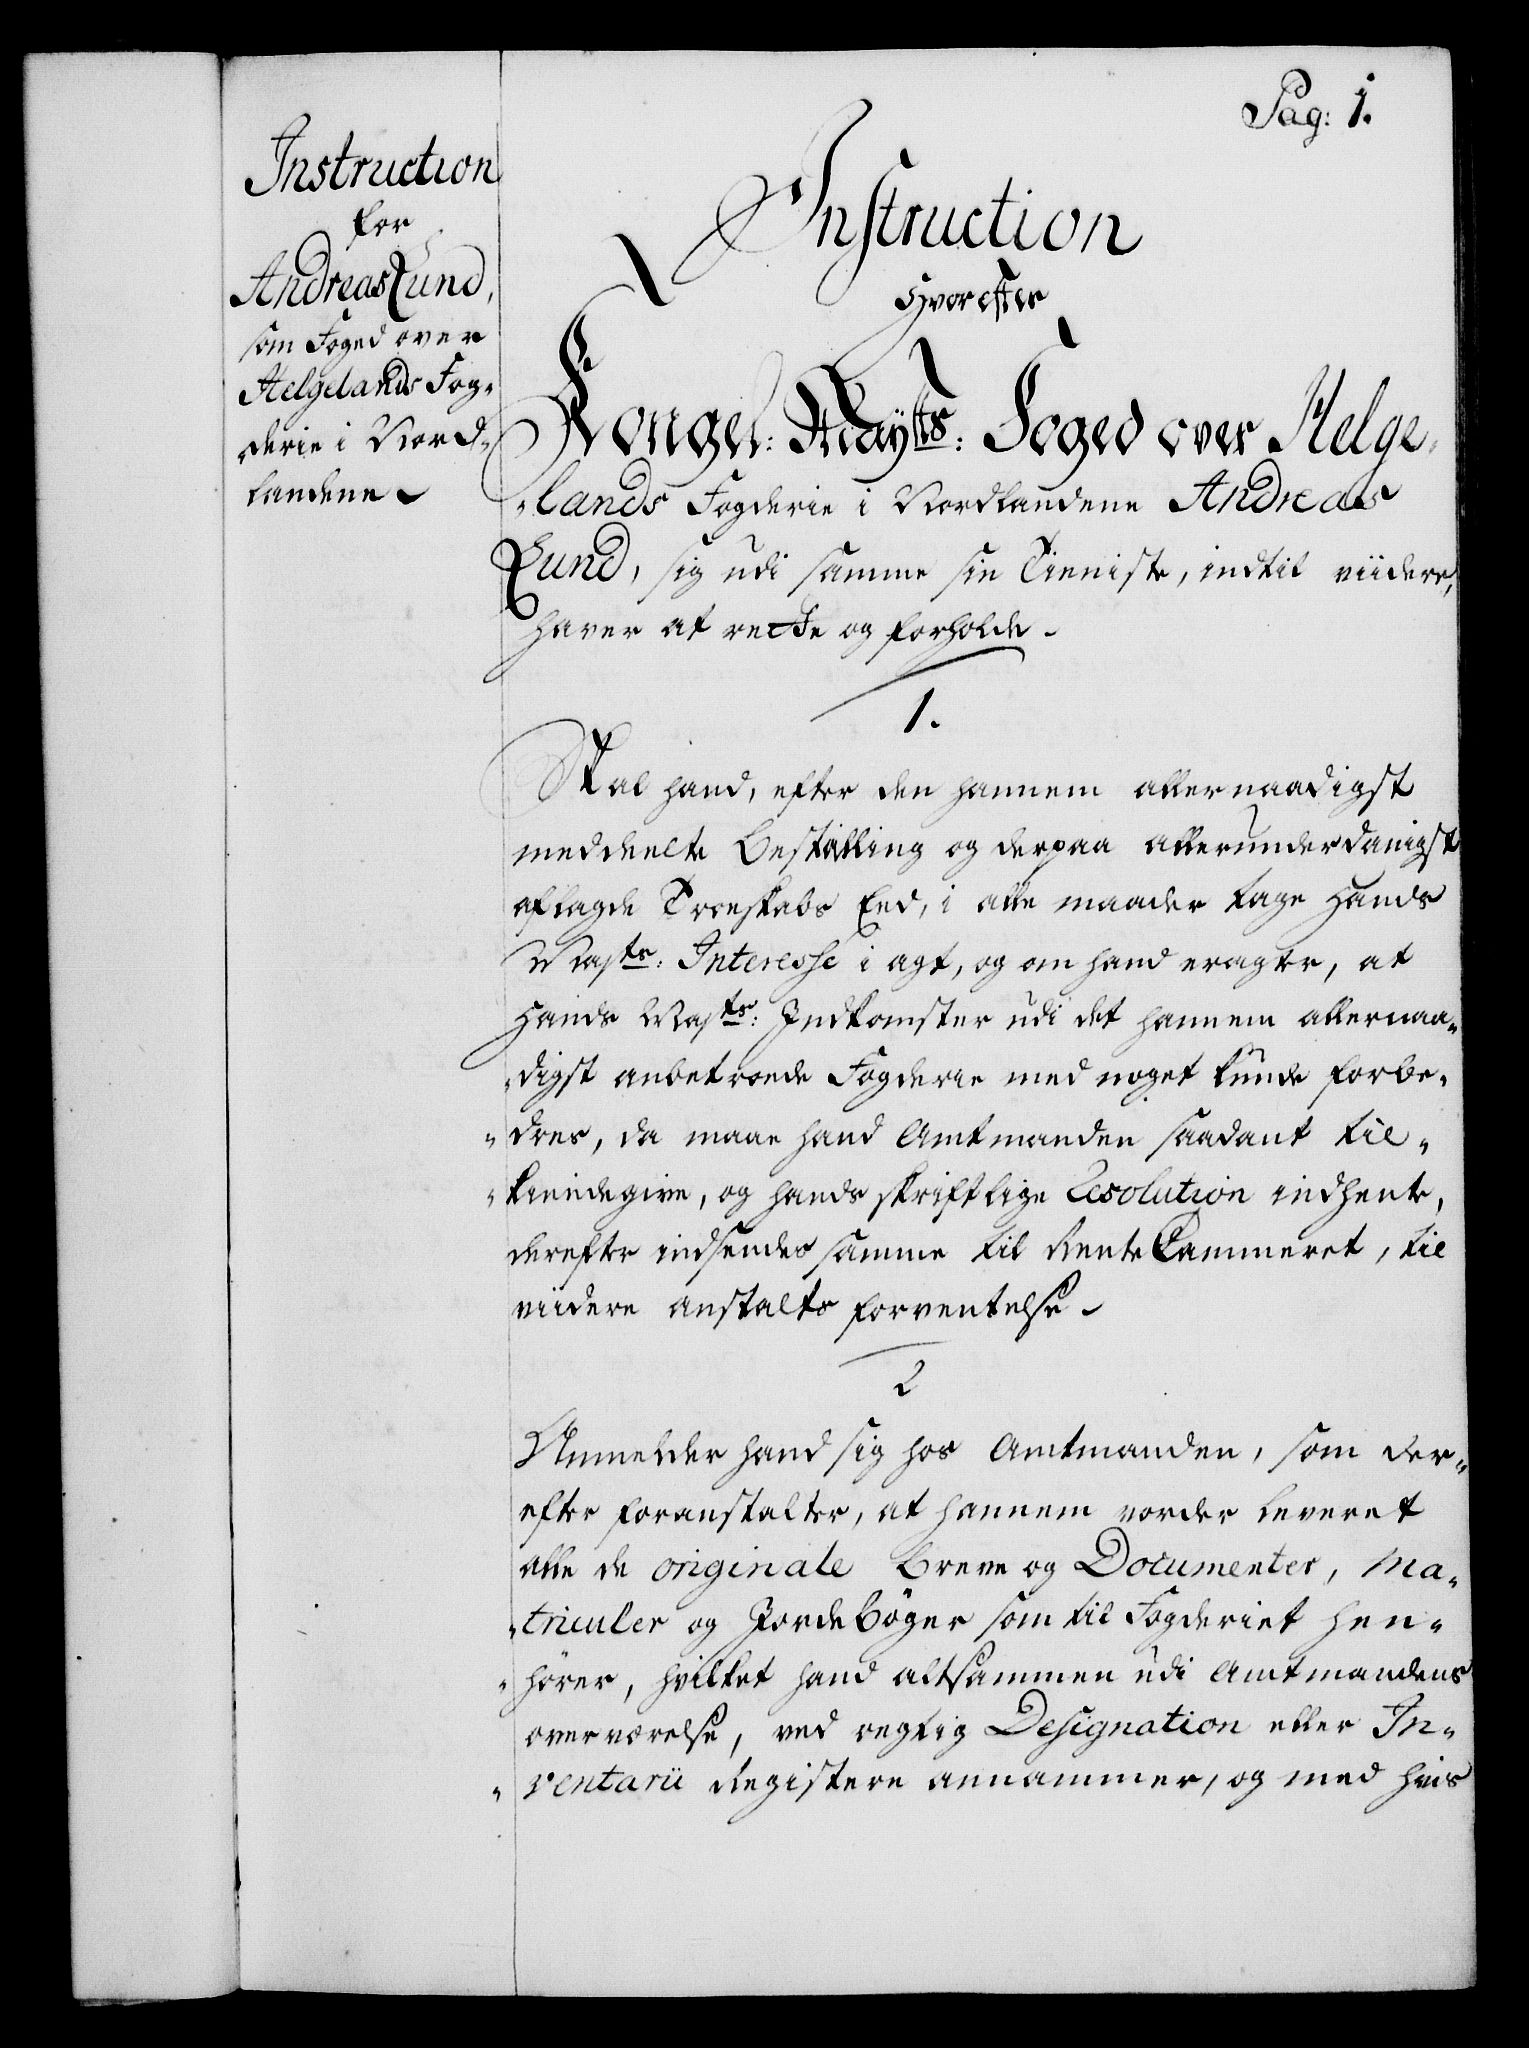 Pag: 1.
Instruction
for
Andreas Lund,
som Foged over
Helgelands Fog-
derie i Nord-
landene
Instruction
Hvorefter
Kongel: Mayts: Foged over Helge-
-lands Fogderie i Nordlandene Andreas
Lund, sig udi samme sin Tieniste, indtil viidere,
haver at rette og forholde
1.
Skal hand, efter den hannem allernaadigst
meddeelte Bestalling og derpaa allerunderdanigst
aflagde Troeskabs Eed, i alle maader tage Hands
Mayts: Interesse i agt, og om hand eragter, at
Hands Mayts: Indkomster udi det hannem allernaa-
-digst anbetroede Fogderie med noget kunde forbe-
-dres, da maae hand Amtmanden saadant til-
-kiendegive, og hands skriftlige Resolution indhente,
derefter indsendes samme til Rente Cammeret, til
viidere anstalts forventelse
2
Anmelder hand sig hos Amtmanden, som der-
efter foranstalter, at hannem vorder leveret
alle de originale breve og Documenter, Ma-
-triculer og Jordebøger som til Fogderiet hen-
-hører, hvilket hand altsammen udi Amtmandens
overværelse, ved rigtig Designation eller In-
-ventarii Registere annammer, og med hvis